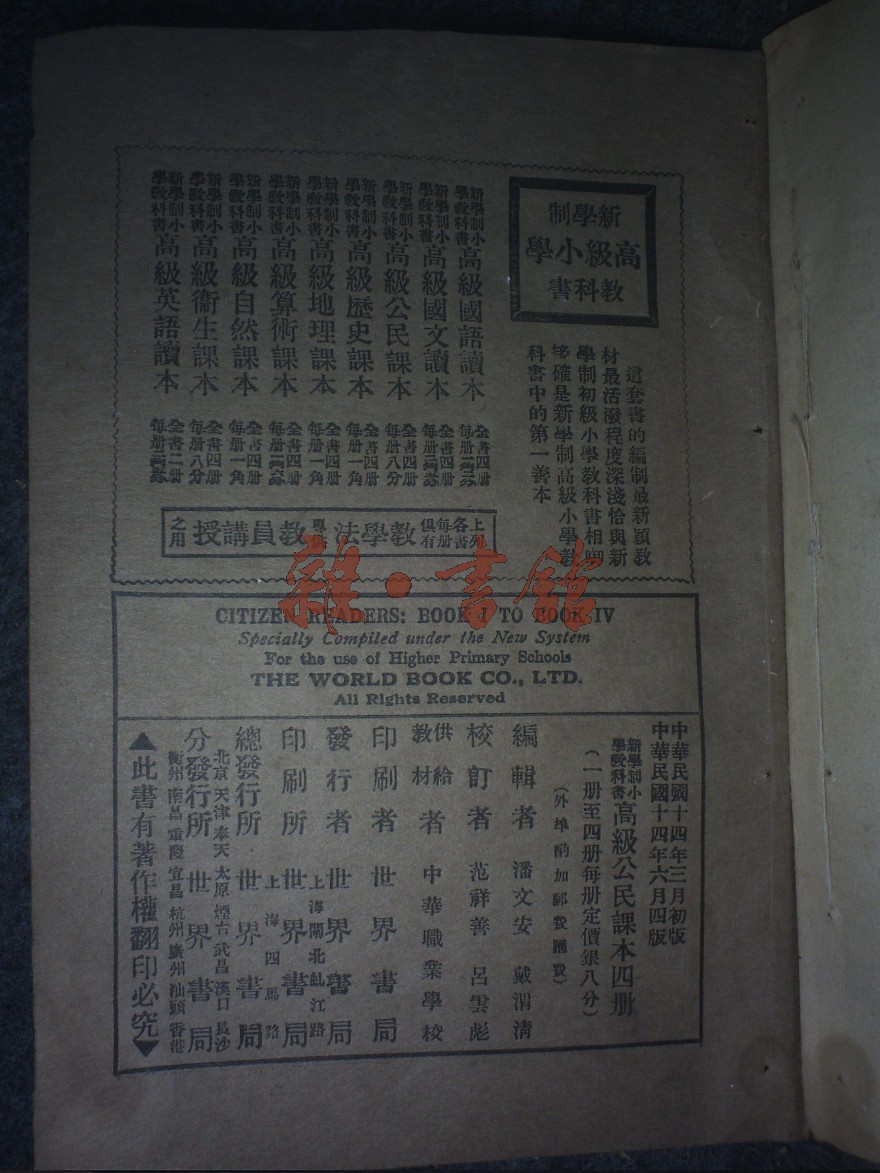 新學制
高級小學
教科書
這套書的編制最新穎教
材最活潑程度深淺恰與新
學制初級小學教科書相啣
接確是新學制高級小學教
科書中的第一善本
新學制小學教科書高級國語讀本 全書四册
新學制小學教科書高級國文讀本 全書四册
新學制小學教科書高級公民課本 全書四册每册八分
新學制小學教科書高級歷史課本 全書四册每册一角
新學制小學教科書高級地理課本 全書四册每册一角
新學制小學教科書高級算術課本 全書四册
新學制小學教科書高級自然課本 全書四册每册一角
新學制小學教科書高級衛生課本 全書四册每册八分
新學制小學教科書高級英語讀本 全書二册
上列各書每册俱有教學法專供教員講授之用
雜·書館
CITIZEN READERS: BOOK I TO BOOK IV
Specially Compiled under the New System
For the use of Higher Primary Schools
THE WORLD BOOK CO., LTD.
All Rights Reserved
中華民國十四年三月初版
中華民國十四年六月四版
新學制小學教科書高級公民課本四册
(一册至四册每册定價銀八分)
(外埠酌加郵費匯費)
編輯者 潘文安 戴渭清
校訂者 范祥善 呂雲彪
供給教材者 中華職業學校
印刷者 世界書局
發行者 世界書局
上海閘北虬江路
印刷所 世界書局
上海四馬路
總發行所 世界書局
北京 天津 奉天 太原 煙台 武昌 漢口 長沙
分發行所 世界書局
衡州 南昌 重慶 宜昌 杭州 廣州 汕頭 香港
▲此書有著作權翻印必究▼